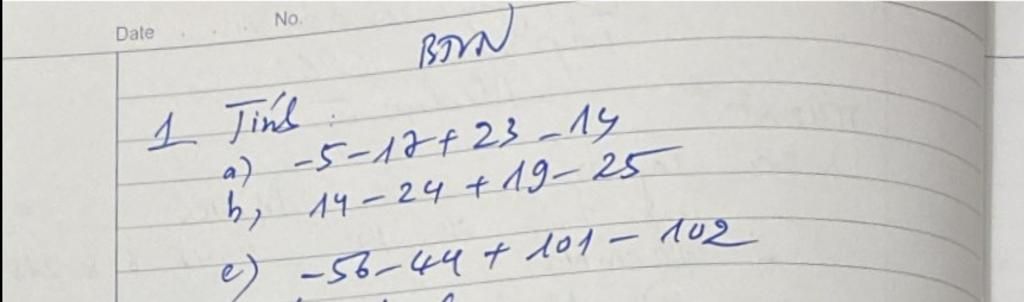 Date No.
BTVN
1 Tính :
a) -5-17+23-14
b, 14-24+19-25
c) -56-44+101-102